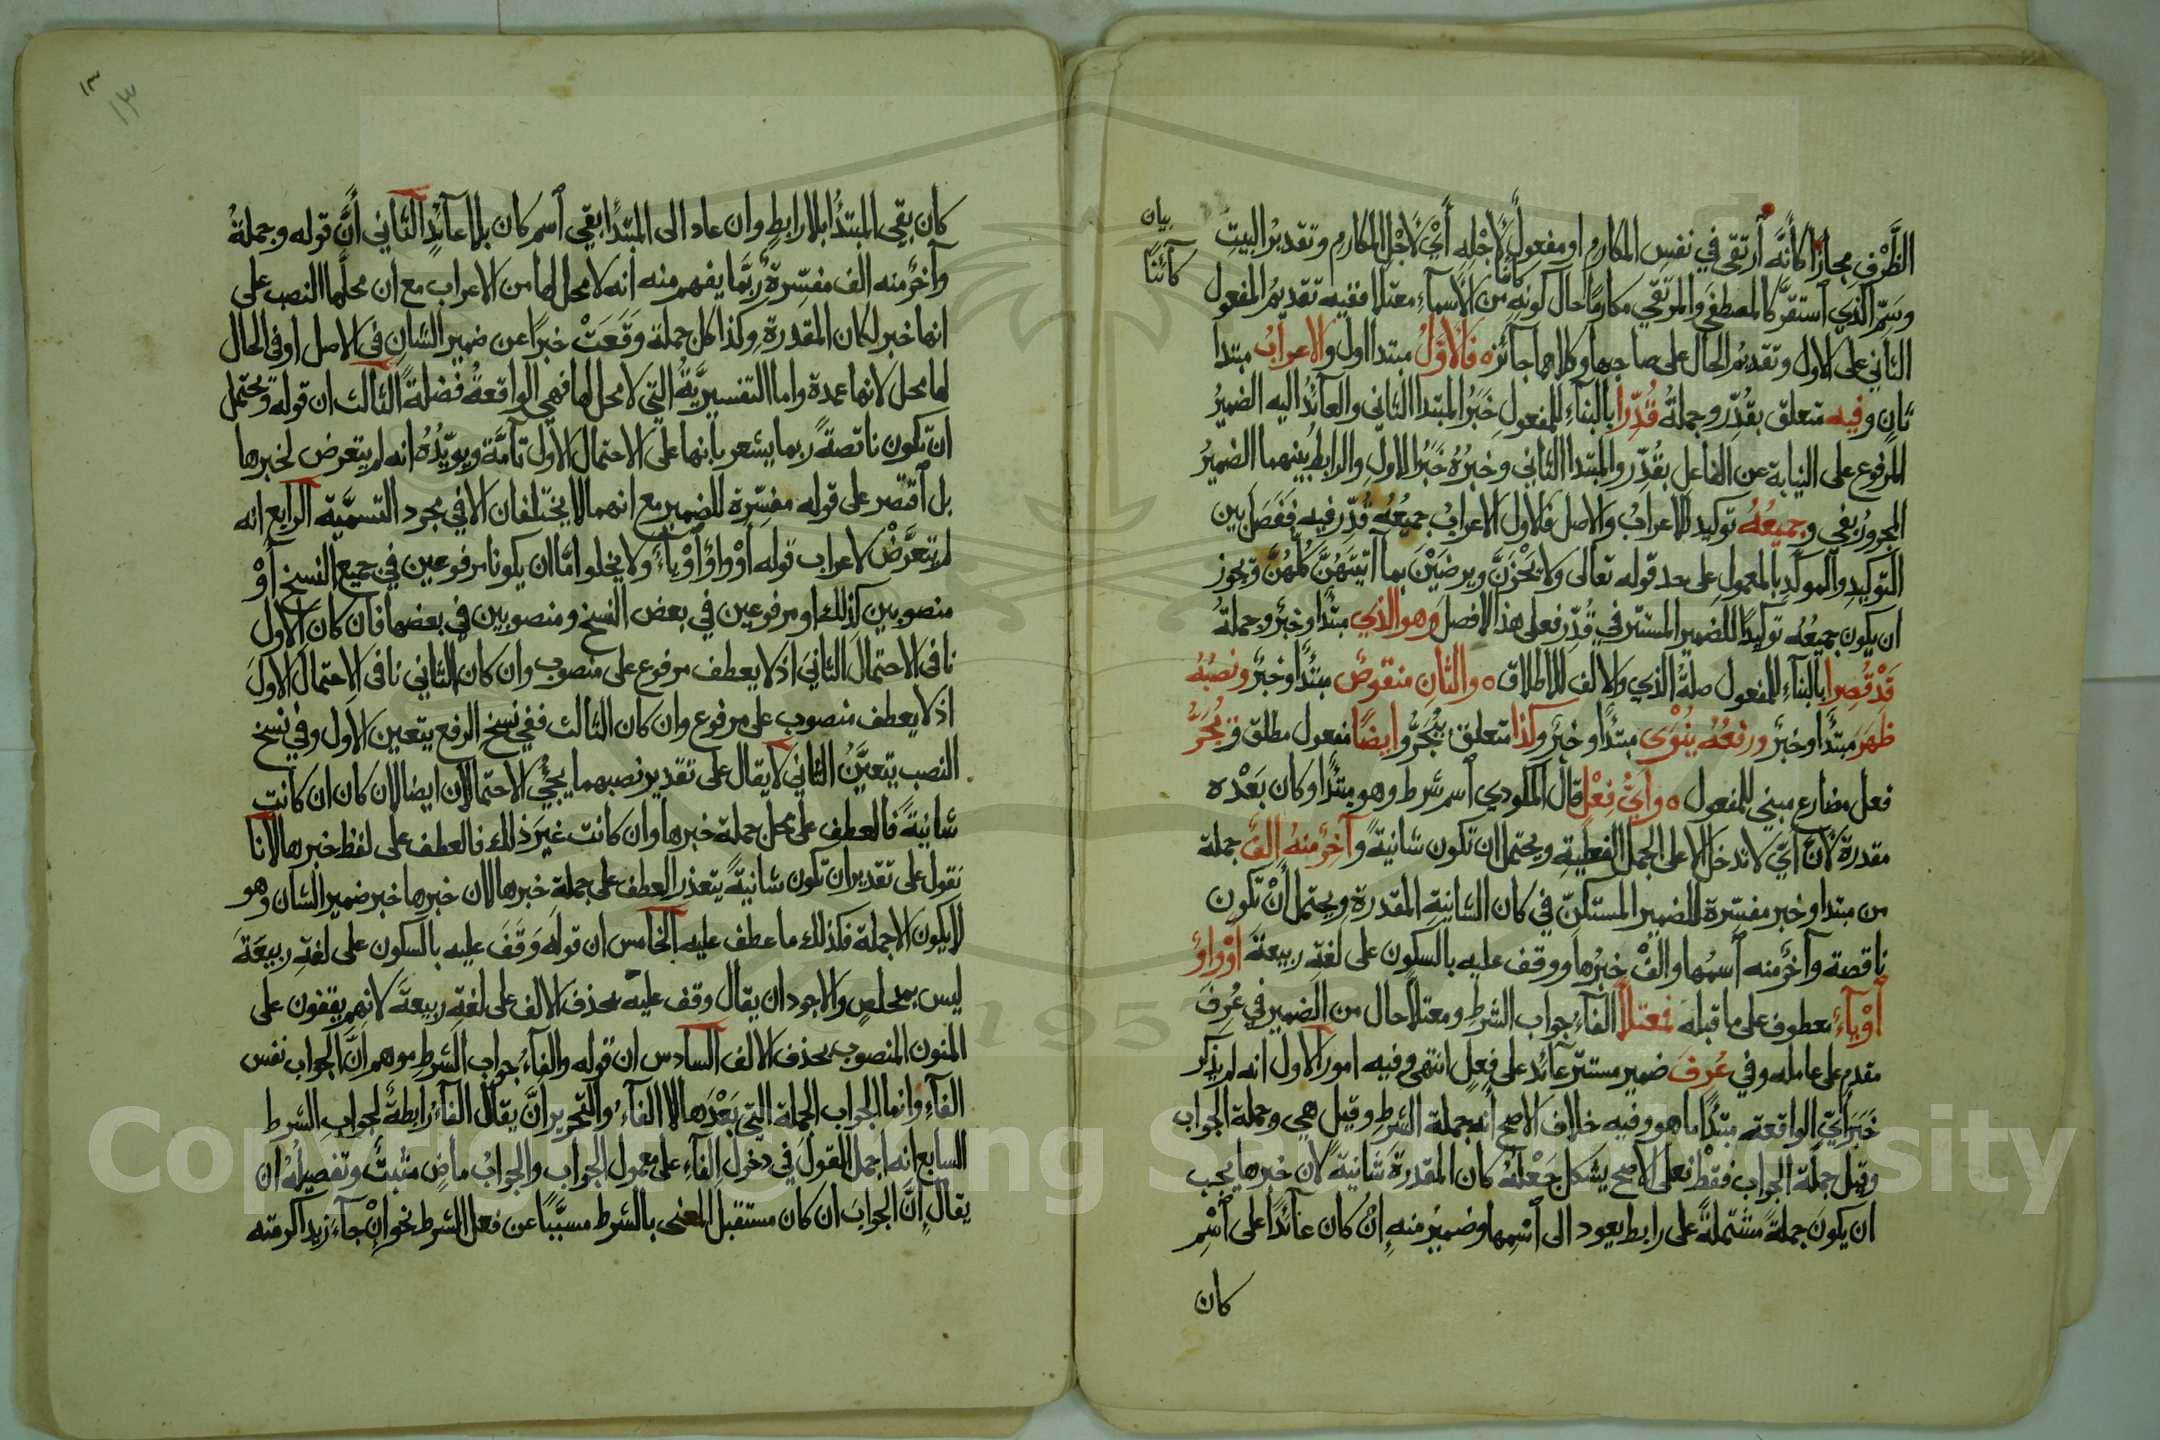 الظَّرْفِ مجازًا كأنَّهُ ٱرتقى في نفسِ المكارمِ او مفعولٌ لأجْلِهِ أَيْ لأجْلِ المكارمِ وتقديرُ البيتِ
بيان
كآئنًا
وسَمِّ الَّذي ٱستقرَّ كالمصطفَى والمرتقي مكارمًا حال كونهِ كائنا من الأسمآءِ معتلا ففيه تقديمُ المفعول
الثاني على الاول وتقديمُ الحال على صاحبها وكلاهما جآئزه فَالأوَّلُ مبتدا اول والاعرابُ مبتدا
ثانٍ وفيه متعلق بقُدِّرَ وجملةُ قُدِّرا بالبنآءِ للمفعولِ خَبَرُ المبتدا الثاني والعآئدُ اليه الضميرُ
المرفوع على النيابة عن الفاعل بقُدِّرَ والمبتدا الثاني وخبرُهُ خَبَرُ الاولِ والرابطُ بينهما الضميرُ
المجرورُ بفي وجميعُهُ توكيد للاعرابُ والاصل فالاول الاعرابُ جميعُهُ قُدِّر فيه فَفَصَلَ بين
التوكيدِ والموكَّدِ بالمعمولِ على حد قوله تعالى ولا يَحْزَنَّ ويرضَيْنَ بما آتيتَهُنَّ كلُّهُنَّ ويجوز
ان يكون جميعُهُ توكيدًا للضمير المستتر في قُدِّر فعلى هذا لا فصل وهو الذي مبتدأ وخبَرٌ وجملةُ
قَدْ قُصِرا بالبنآءِ للمفعول صلةُ الذي والالف للاطلاق ٥ والثانِ منقوصٌ مبتدأ وخبرٌ ونصبُهُ
ظهَرَ مبتدأ وخبرٌ ورفعُهُ يُنْوَى مبتدأ وخبَرٌ وكذا متعلق بيُجَرُّ وايضًا مفعول مطلق ويُجَرُّ
فعل مضارع مبني للمفعول ٥ وأيُّ فِعْلٍ قال المكودي ٱسم شرط وهو مبتدأ وكان بَعْده
مقدرة لأنَّ أيّ لا تدخل الا على الجمل الفعليةِ ويحتمل ان تكون شانيةً وآخِرٌ منهُ الِفٌ جملة
من مبتدا وخبر مفسّرة للضمير المستكنّ في كان الشانيةِ المقدرةِ ويحتمل أنْ تكون
ناقصة وآخرٌ منه ٱسمُها والفْ خبرُها ووقف عليه بالسكون على لغةِ ربيعةَ أوْ واوٌ
أوْ يآءٌ معطوف على ما قبلهَ فمعتلاً الفآءُ جواب الشرطِ ومعتلاً حال من الضمير في عُرِفَ
مقدم على عامله وفي عُرِفَ ضمير مستتر عآئد على فعلٍ انتهى وفيه امور الاول انه لم يذكر
خَبَرَ أيّ الواقعة مبتدًا ما هو وفيه خلاف الاصح أنه جملة الشرطِ وقيل هي وجملة الجواب
وقيل جملة الجواب فقط فعلى الاصح يشكل جَعْلُهُ كان المقدرة شانية لان خبرها يجب
ان يكونَ جملةً مشتملةً على رابط يعود الى ٱسْمِها وضميرُ منهِ إنْ كان عآئدًا على ٱسْمِ
كان
١٣
١٣
كان بقي المبتدُا بلا رابطٍ وان عاد الى المبتدأ بقي ٱسم كان بلا عآئدٍ الثاني أنَّ قوله وجملةُ
وآخرٌ منه الف مفسّرةٌ ربَّما يفهم منه انه لا محل لها من الاعراب مع ان محلَّها النصب على
انها خبر لكان المقدرةِ وكذا كل جملة وَقَعَتْ خبرًا عن ضمير الشانِ في الاصل او في الحال
لها محل لانها عمدة واما التفسيريَّةُ التي لا محل لها فهي الواقعةُ فضلةً الثالث ان قوله ويحتمل
ان تكون ناقصةً ربما يشعر بأنها على الاحتمال الأول تآمَّة ويويّدُهُ انه لم يتعرض لخبرها
بل ٱقتصر على قوله مفسّرة للضمير مع انهما لا يختلفان الا في مجرد التسميَّة الرابع انه
لم يتعرَّضْ لاعراب قوله أوْ واوٌ أوْ يآءٌ ولا يخلو امّا ان يكونا مرفوعين في جميع النسخ أوْ
منصوبين كذلك او مرفوعين في بعض النسخ ومنصوبين في بعضها فان كان الأول
نافى الاحتمال الثانيَ اذ لا يعطف مرفوع على منصوب وان كان الثاني نافى الاحتمالَ الاولَ
اذ لا يعطف منصوب على مرفوع وان كان الثالث ففي نسخ الرفع يتعين الأول وفي نسخ
النصب يتعيَّنُ الثاني لا يقال على تقدير نصبهما يجيُّ الاحتمالان ايضا لان كان ان كانت
شانيةً فالعطف على محل جملة خبرها وان كانت غيرَ ذلك فالعطف على لفظ خبرها لأنا
نقول على تقدير ان تكون شانيةً يتعذر العطف على جملة خبرها لان خبرها خبر ضمير الشان وهو
لا يكون الا جملة فكذلك ما عطف عليه الخامس ان قوله وَقَفَ عليه بالسكون على لغةِ ربيعَةَ
ليس بمخلصٍ والاجود ان يقال وقف عليه بحذف الالف على لغةِ ربيعةَ لانهم يقفون على
المنون المنصوب بحذف الالف السادس ان قوله والفآءُ جواب الشرطِ موهم انَّ الجواب نفس
الفآءِ وانما الجواب الجملة التي بَعْدَها لا الفآءُ والتحرير انَّ يقال الفآءُ رابطةٌ لجوابِ الشرط
السابع انه اجمل القولَ في دخول الفآءِ على معمول الجواب والجوابُ ماضٍ مثبتٌ وتفصيلُهُ ان
يقال انَّ الجوابَ ان كان مستقبل المعنى بالشرط مسبَّبًا عن فعل الشرط نحو انْ جآءَ زيد اكرمته
Copyright © King Saud University
1957